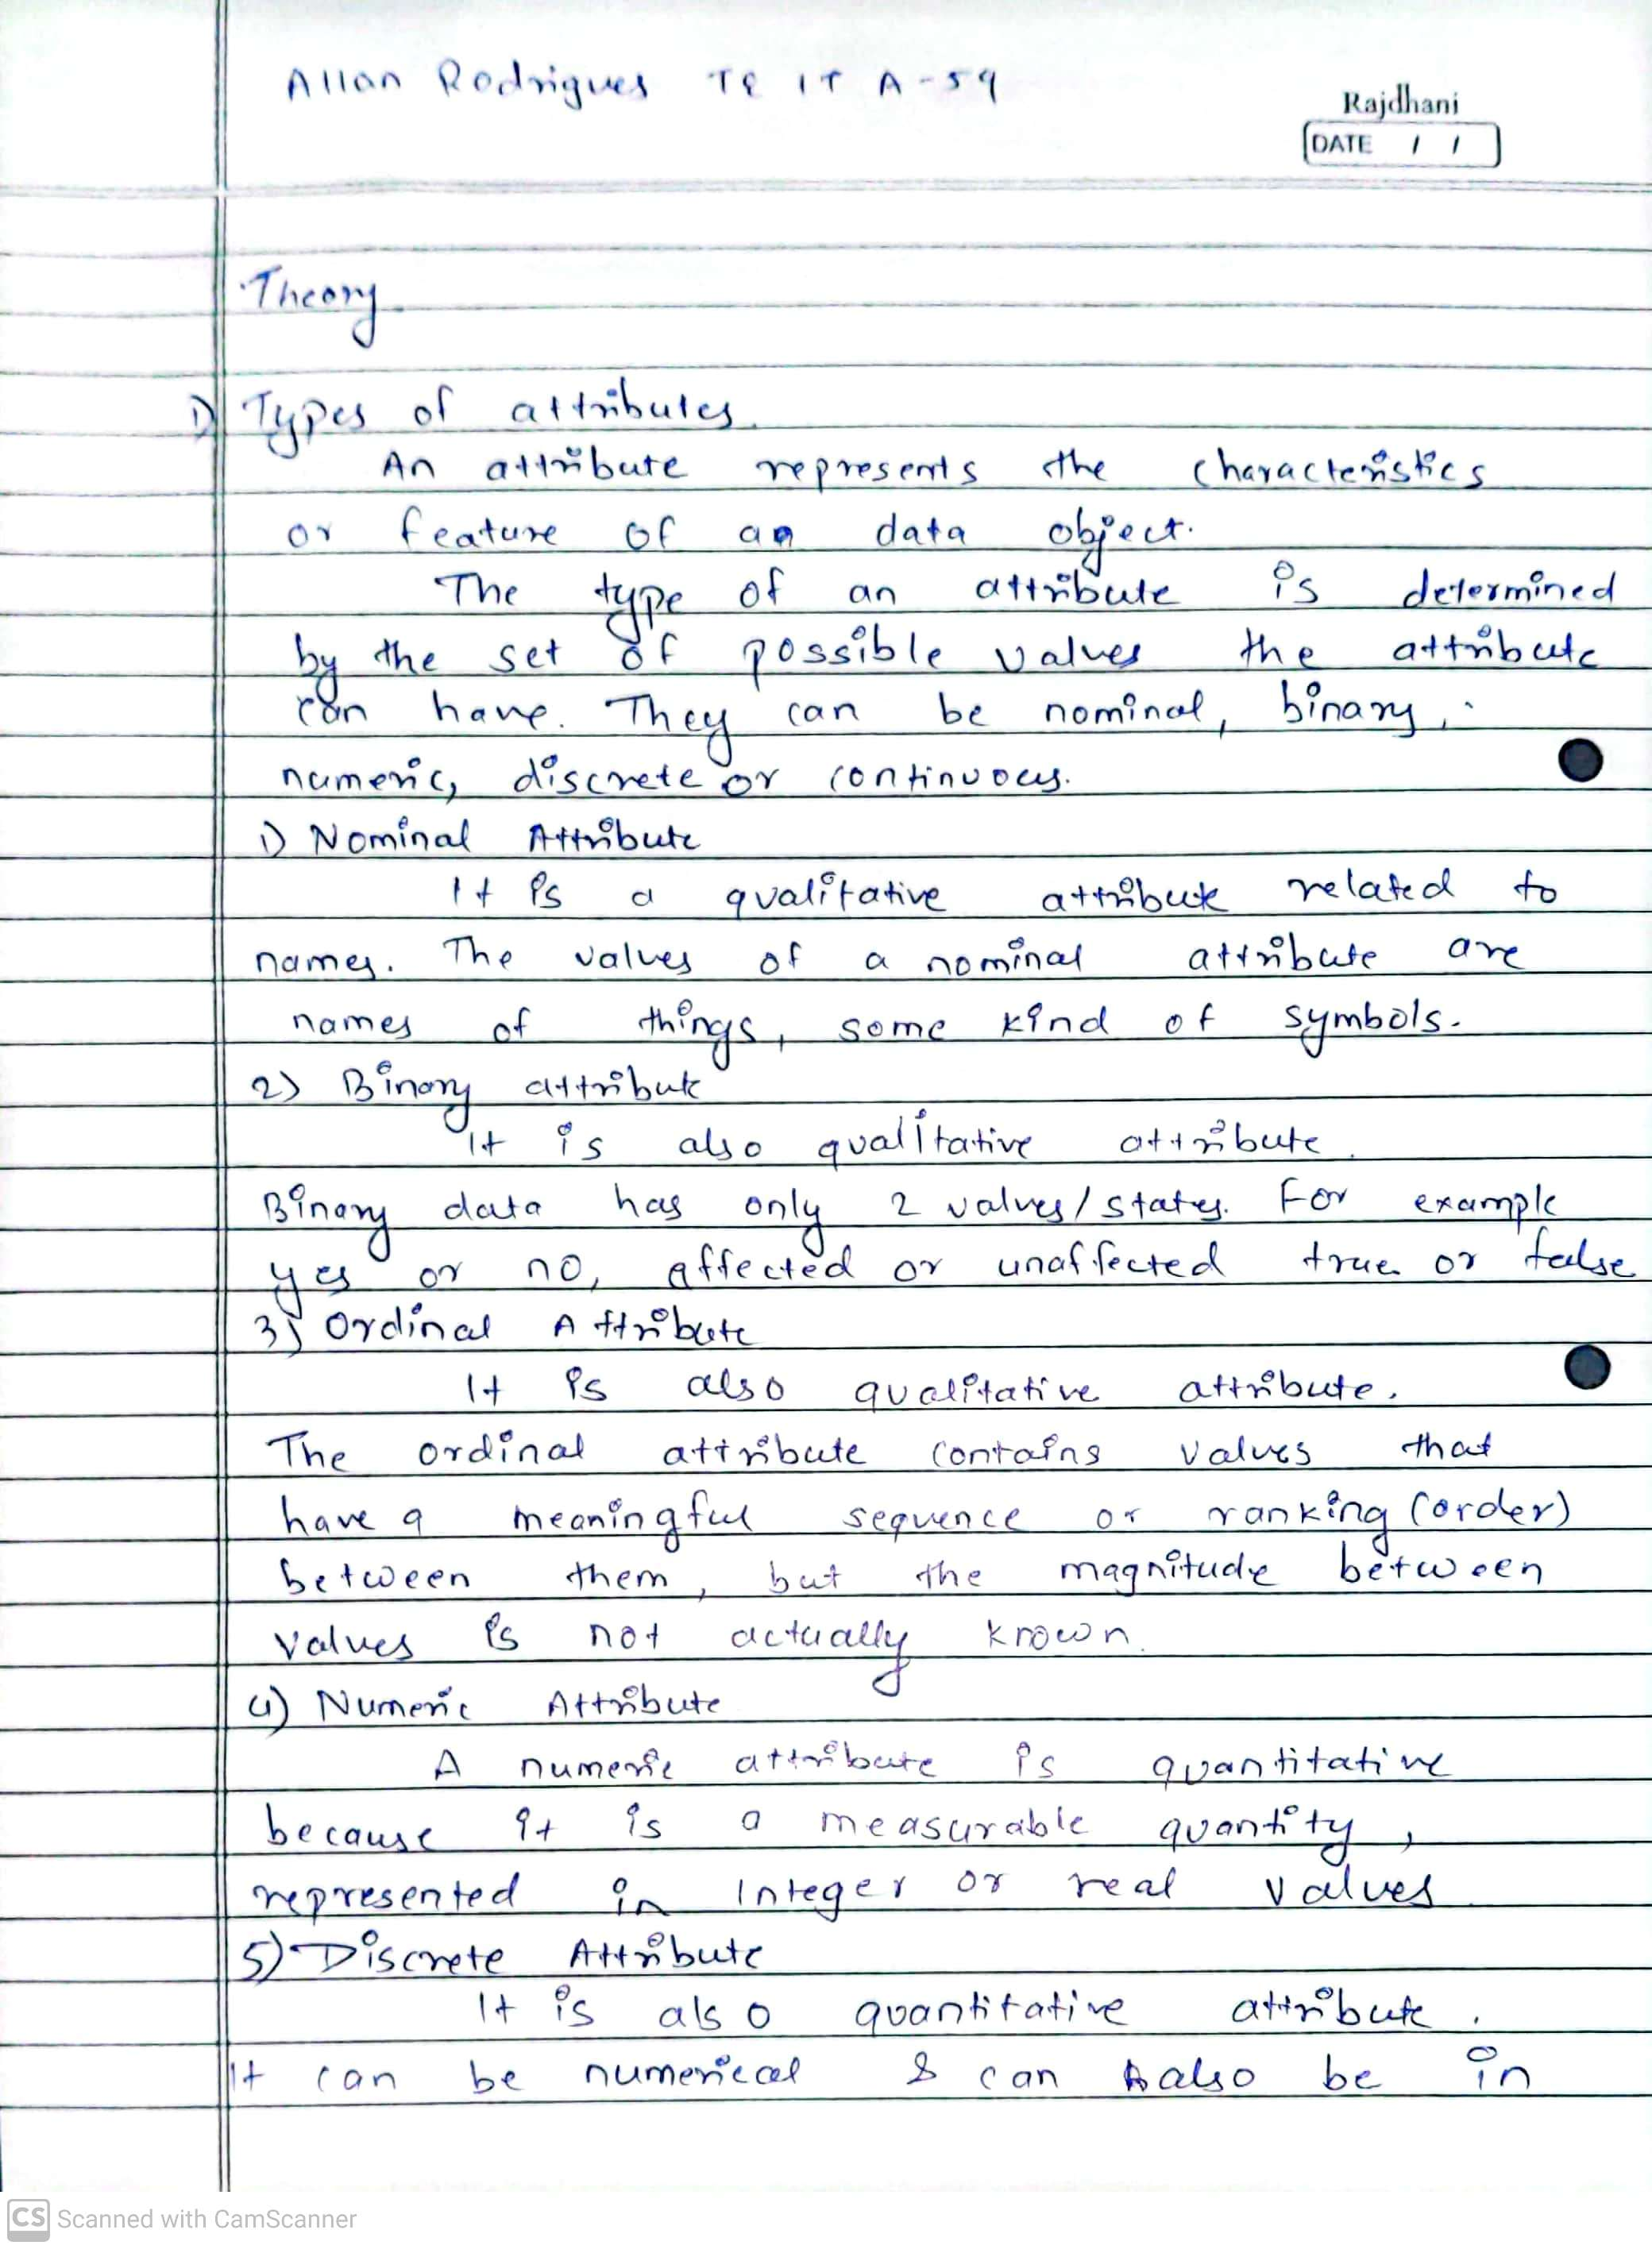 Allan Rodrigues TE IT A-59
Rajdhani
DATE / /
Theory
1) Types of attributes.
An attribute represents the characteristics
or feature of an data object.
The type of an attribute is determined
by the set of possible values the attribute
can have. They can be nominal, binary,
numeric, discrete or continuous.
1) Nominal Attribute
It is a qualitative attribute related to
names. The values of a nominal attribute are
names of things, some kind of symbols.
2) Binary attribute
It is also qualitative attribute.
Binary data has only 2 values/states. For example
yes or no, affected or unaffected true or false
3) Ordinal Attribute
It is also qualitative attribute.
The ordinal attribute contains values that
have a meaningful sequence or ranking (order)
between them, but the magnitude between
values is not actually known.
4) Numeric Attribute
A numeric attribute is quantitative
because it is a measurable quantity,
represented in Integer or real values
5) Discrete Attribute
It is also quantitative attribute.
It can be numerical & can also be in
CS Scanned with CamScanner